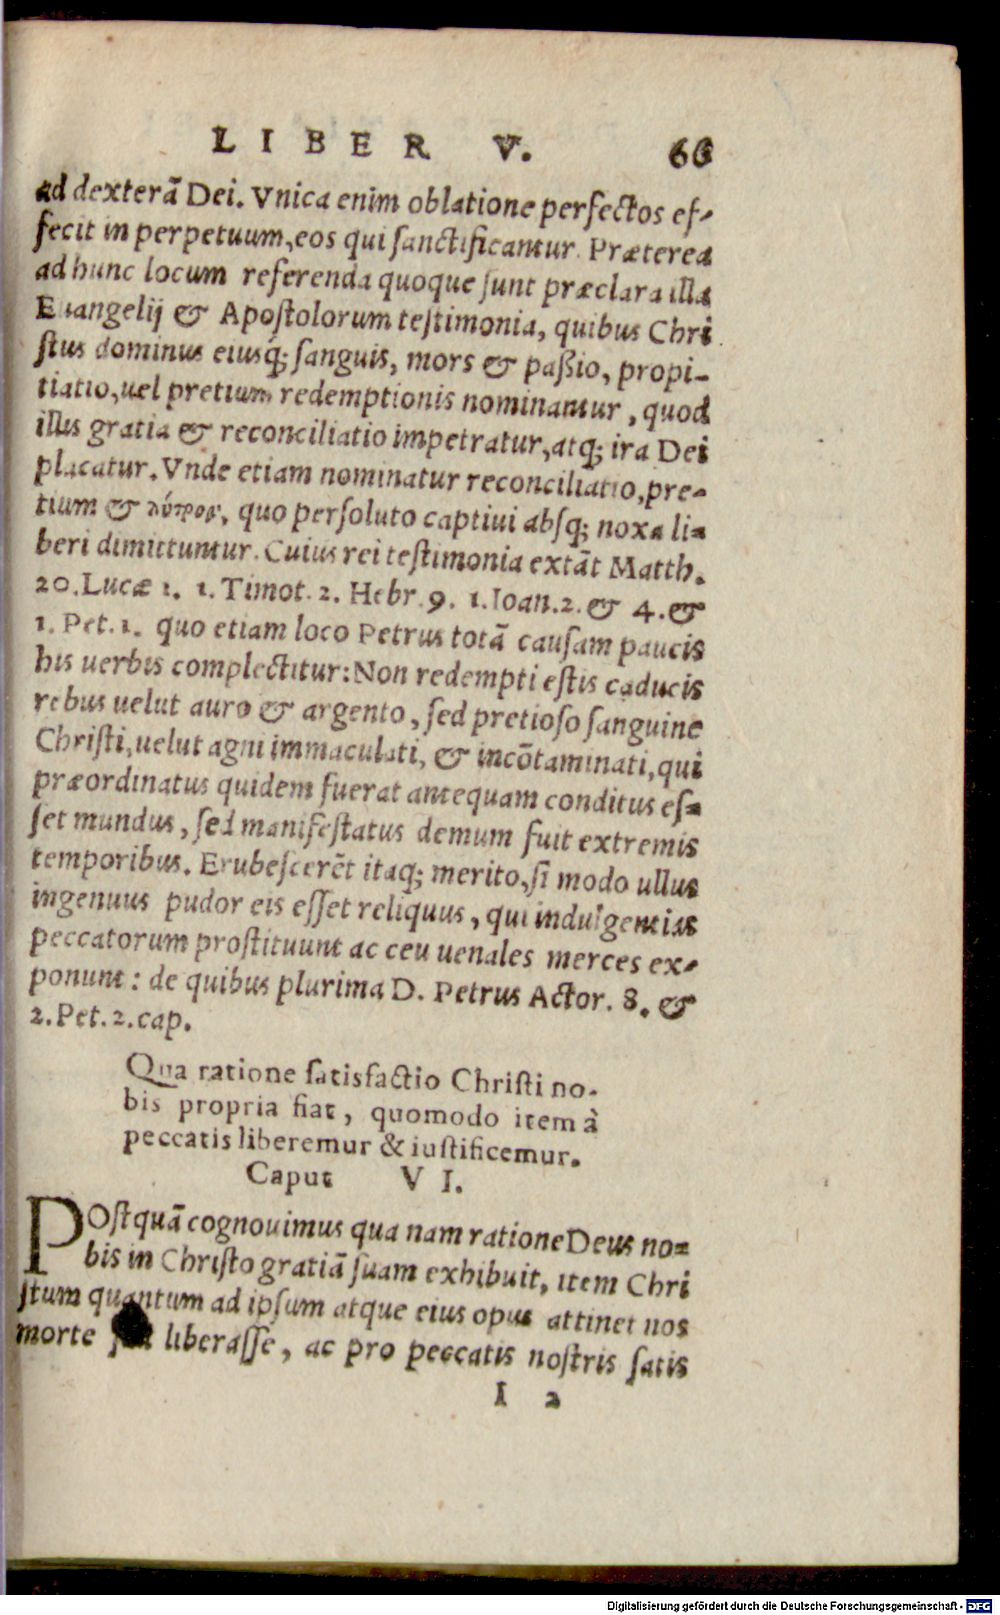 LIBER V. 66
ad dexterã Dei. Vnica enim oblatione perfectos ef-
fecit in perpetuum, eos qui sanctificantur. Præterea
ad hunc locum referenda quoque sunt præclara illa
Euangelij & Apostolorum testimonia, quibus Chri
stus dominus eiusq; sanguis, mors & paßio, propi-
tiatio, uel pretium redemptionis nominantur, quod
illis gratia & reconciliatio impetratur, atq; ira Dei
placatur. Vnde etiam nominatur reconciliatio, pre-
tium & λύτρον, quo persoluto captiui absq; noxa li-
beri dimittuntur. Cuius rei testimonia extãt Matth.
20. Lucæ 1. 1. Timot. 2. Hebr. 9. 1. Ioan. 2. & 4. &
1. Pet. 1. quo etiam loco Petrus totã causam paucis
his uerbis complectitur: Non redempti estis caducis
rebus uelut auro & argento, sed pretioso sanguine
Christi, uelut agni immaculati, & incõtaminati, qui
præordinatus quidem fuerat antequam conditus es-
set mundus, sed manifestatus demum fuit extremis
temporibus. Erubescerẽt itaq; merito, si modo ullus
ingenuus pudor eis esset reliquus, qui indulgentias
peccatorum prostituunt ac ceu uenales merces ex-
ponunt: de quibus plurima D. Petrus Actor. 8. &
2. Pet. 2. cap.
Qua ratione satisfactio Christi no-
bis propria fiat, quomodo item à
peccatis liberemur & iustificemur.
Caput VI.
POstquã cognouimus qua nam ratione Deus no-
bis in Christo gratiã suam exhibuit, item Chri
stum quantum ad ipsum atque eius opus attinet nos
morte liberasse, ac pro peccatis nostris satis
I 2
Digitalisierung gefördert durch die Deutsche Forschungsgemeinschaft - DFG